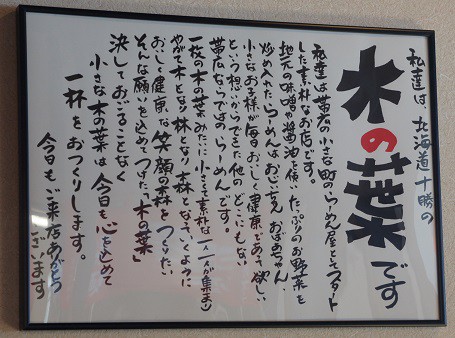 私達は、北海道十勝の
木の葉です
私達は帯広の小さな町のらーめん屋としてスタート
した素朴なお店です。
地元の味噌や醤油を使い、たっぷりのお野菜を
炒め入れたらーめんはおじいちゃん、おばあちゃん、
小さなお子様が毎日おいしく健康であって欲しい
という想いからできた他のどこにもない
帯広ならではのらーめんです。
一枚の木の葉みたいに小さくて素朴な一人一人が集まり
やがて木となり林となり森となっていくように
おいしく健康な笑顔の森をつくりたい
そんな願いを込めてつけた「木の葉」
決しておごることなく
小さな木の葉は今日も心を込めて
一杯をおつくりします。
今日もご来店ありがとう
ございます